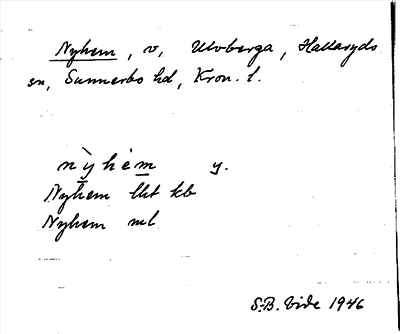 Nyhem, v, Ulvberga, Hallaryds
sn, Sunnerbo hd, Kron. l.
nỳhèm y.
Nyhem lht kb
Nyhem ml
S-B. Vide 1946